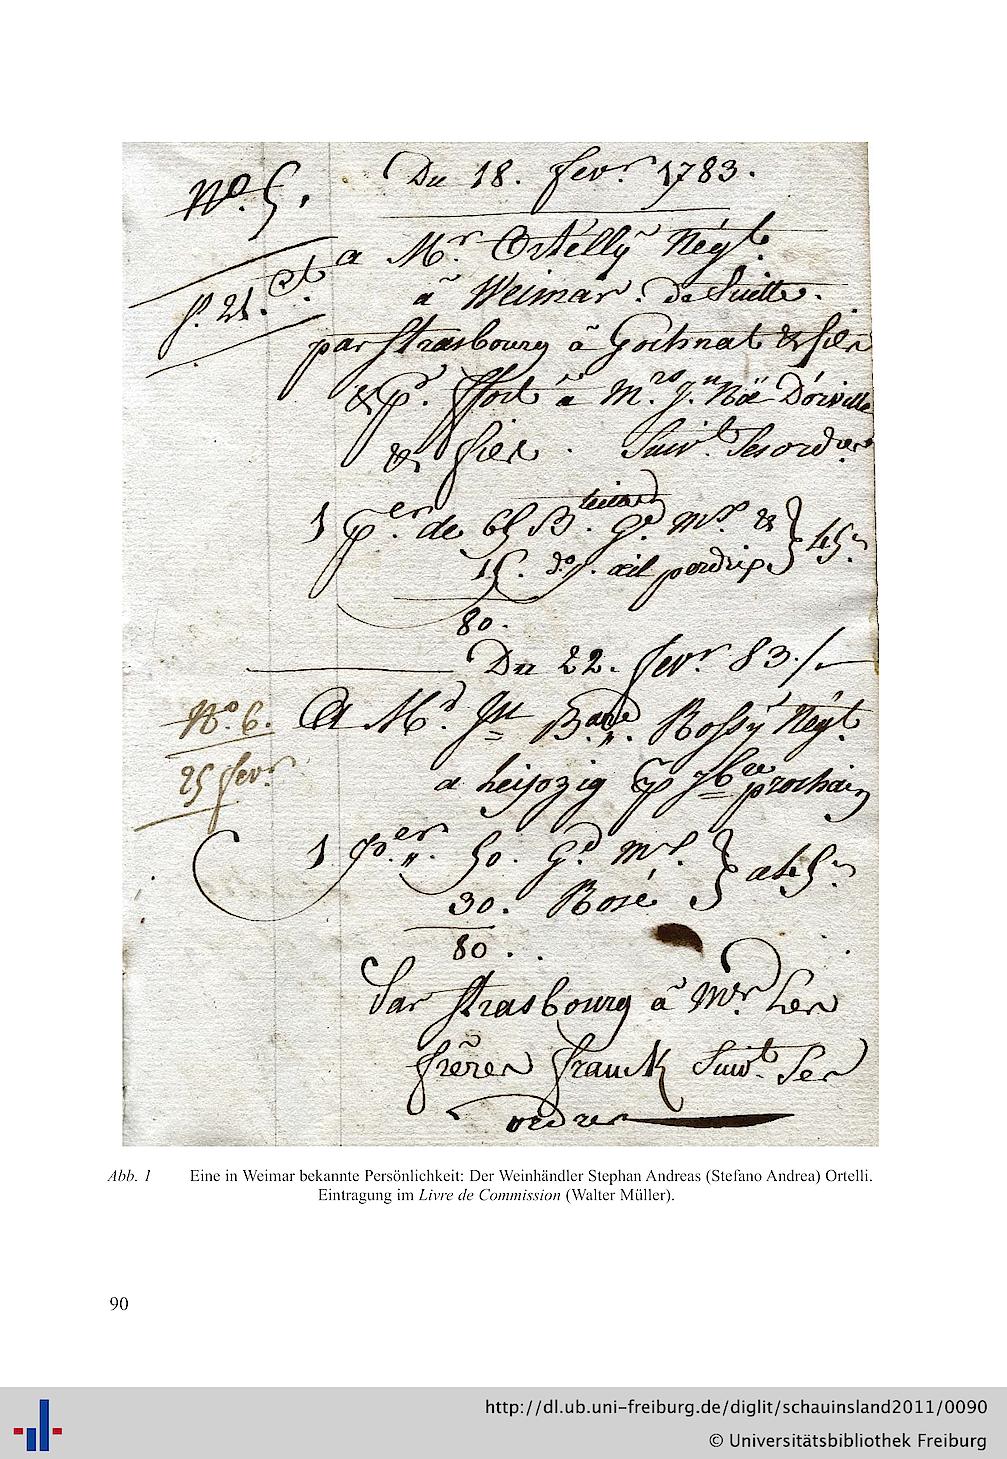 Du 18. fevr. 1783.
No. 5.
a Mr. Ortelly Négt.
p. 21. ct.
a Weimar. de Suitte.
par Strasbourg a Gochnat & fils
& pr. ffort a Mrs. Jn Noë D'orville
& fils. Suivt. Ses ordres
1 per. de 65 B. Gd. Mss. &
15. do. p. œil perdrix } 45.
80.
Du 22. fevr. 83./.
No. 6. A Mr. Jn Bapt. Rossy Négt.
25 fevr. a Leipzig p 7bre prochain
1 per. 50. Gd. Mss.
30. Rosé } a 45.
80.
Par Strasbourg a Mrs. Les
freres franck Suivt. Ses
ordres
Abb. 1 Eine in Weimar bekannte Persönlichkeit: Der Weinhändler Stephan Andreas (Stefano Andrea) Ortelli.
Eintragung im Livre de Commission (Walter Müller).
90
http://dl.ub.uni-freiburg.de/diglit/schauinsland2011/0090
© Universitätsbibliothek Freiburg